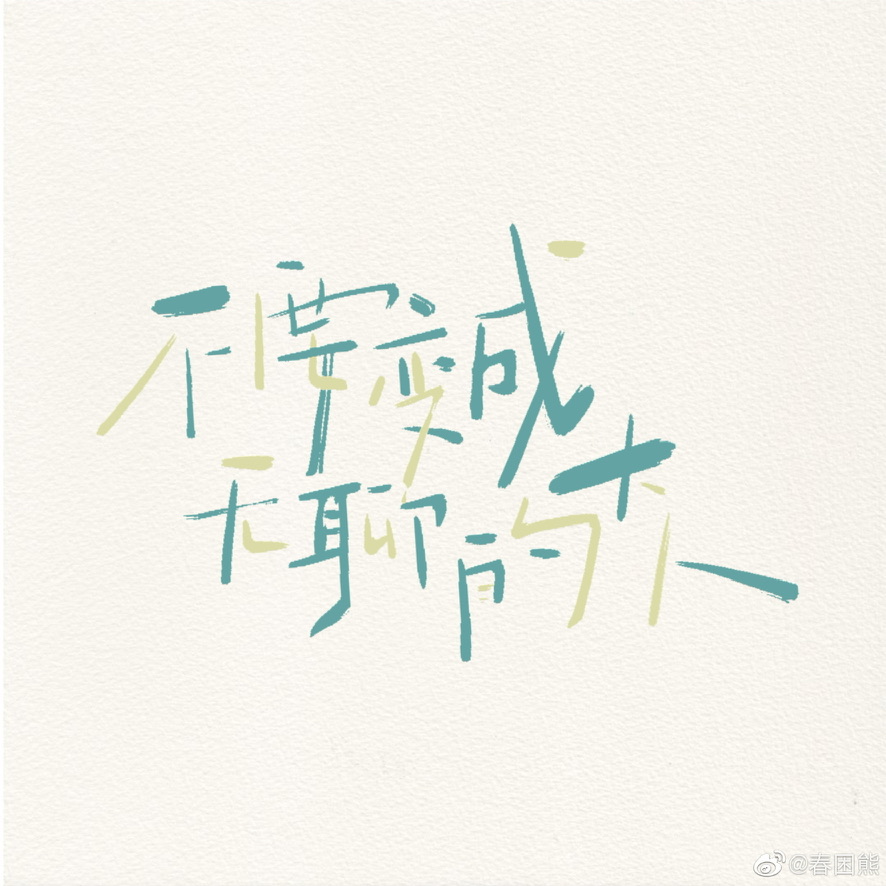 不要变成
无聊的大人
@春困熊